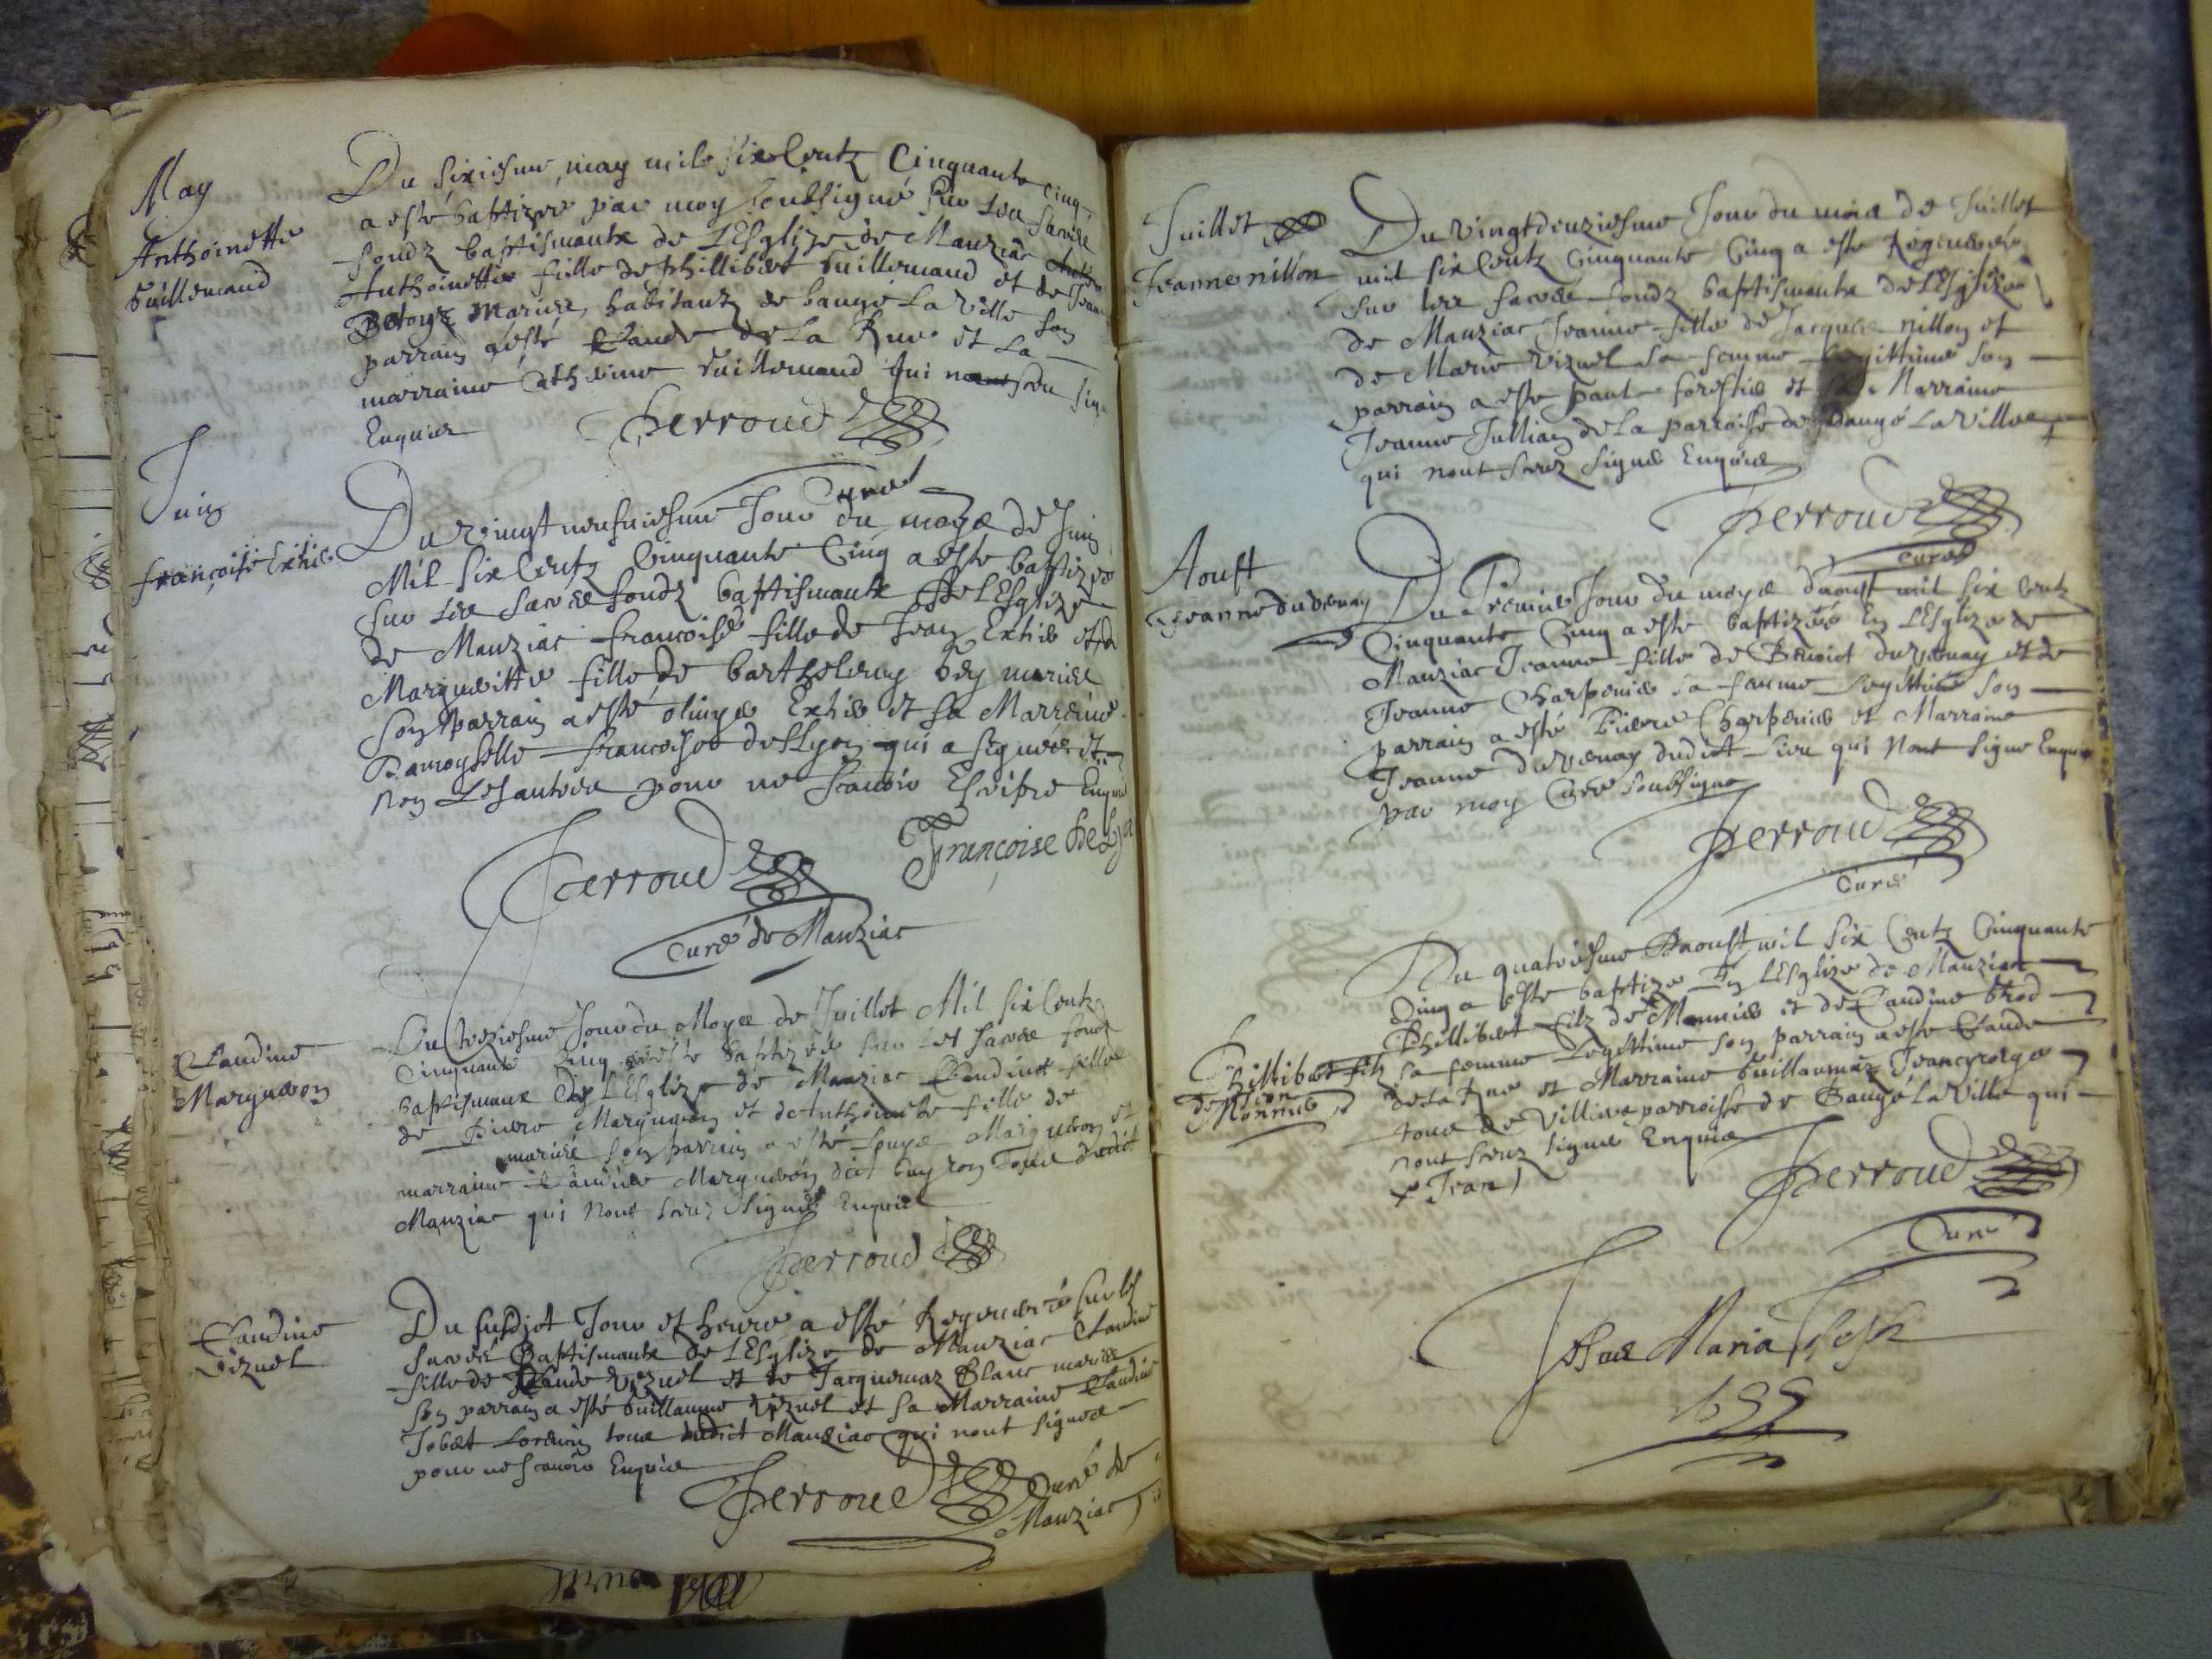 May
Anthoinette
Guillemaud
Du sixiesme may mil six Centz Cinquante cinq
a esté baptizee par moy soubsigné sur les sacrés
fondz baptismaulx de L'Esglize de Manziac
Anthoinette fille de Phillibert Guillemaud et de Jean
mariez, habitantz de baugé La Ville son
parrain a esté Claude de La Rue et La
marraine Catherine Guillemaud qui n'ont sceu sig
Enquis
Perroud
Curé
Juin
françoise Exhis
Du vingt neufviesme Jour du moys de Juin
Mil six Centz Cinquante Cinq a esté baptizee
sur les sacrés fondz baptismaulx de L'Esglize
de Manziac francoise fille de Jean Exhis et de
Margueritte fille de Barthelemy bey mariez
son parrain a esté Exhis et sa Marreine
Damoyselle francoise de Lyon qui a signé et
non Les autres pour ne scavoir Escripre Enquis
Perroud
Françoise De Ly
Curé de Manziac
Claudine
Margueron
Du treziesme Jour du Moys de Juillet Mil six Centz
Cinquante Cinq a esté baptizée sur Les sacrés fondz
baptismaux de L'Esglize de Manziac Claudine fille
de Pierre Margueron et de Anthoinette fille de
mariés son parrain a esté Margueron et
marraine Claudine Margueron dict tous dudict
Manziac qui n'ont sceuz signer Enquis
Perroud
Claudine
Vizuel
Du susdict Jour et heure a esté Regenerée sur les
sacrés Baptismaulx de L'Esglize de Manziac Claudine
fille de Claude Vizuel et de Jacquemaz Blanc mariés
son parrain a esté Guillaume Vizuel et sa Marraine Claudine
Jobert tous dudict Manziac qui n'ont signés
pour ne scavoir Enquis
Perroud Curé de
Manziac
Juillet
Jeanne nillon
Du vingt deuziesme Jour du mois de Juillet
mil six Centz Cinquante Cinq a esté Regenerée
sur les sacrés fondz baptismaulx de L'Esglize
de Manziac Jeanne fille de Jacques nillon et
de Marie Vizuel sa femme Legittime son
parrain a esté Paul forestier et sa Marraine
Jeanne Jullian de La parroisse de Baugé La Ville
qui n'ont sceuz signer Enquis
Perroud
Curé
Aoust
Jeanne duvernay
Du Premier Jour du moys d'aoust mil six Centz
Cinquante Cinq a esté baptizée En L'Esglize de
Manziac Jeanne fille de Benoict duvernay et de
Jeanne Charpenier sa femme Legittime son
parrain a esté Pierre Charpenier et Marraine
Jeanne duvernay dudict Lieu qui n'ont signé Enquis
par moy Curé soubsigné
Perroud
Curé
Phillibert filz
de Jean
Monnier
Du quatriesme D'aoust mil six Centz Cinquante
Cinq a esté baptizé En L'Esglize de Manziac
Phillibert filz de Monnier et de Claudine brod
sa femme Legittime son parrain a esté Claude
de La Rue et Marraine Guillaumaz
tous de parroisse de Baugé La Ville qui
n'ont sceuz signer Enquis
+ Jean
Perroud
Curé
Jesus Maria Joseph
1655